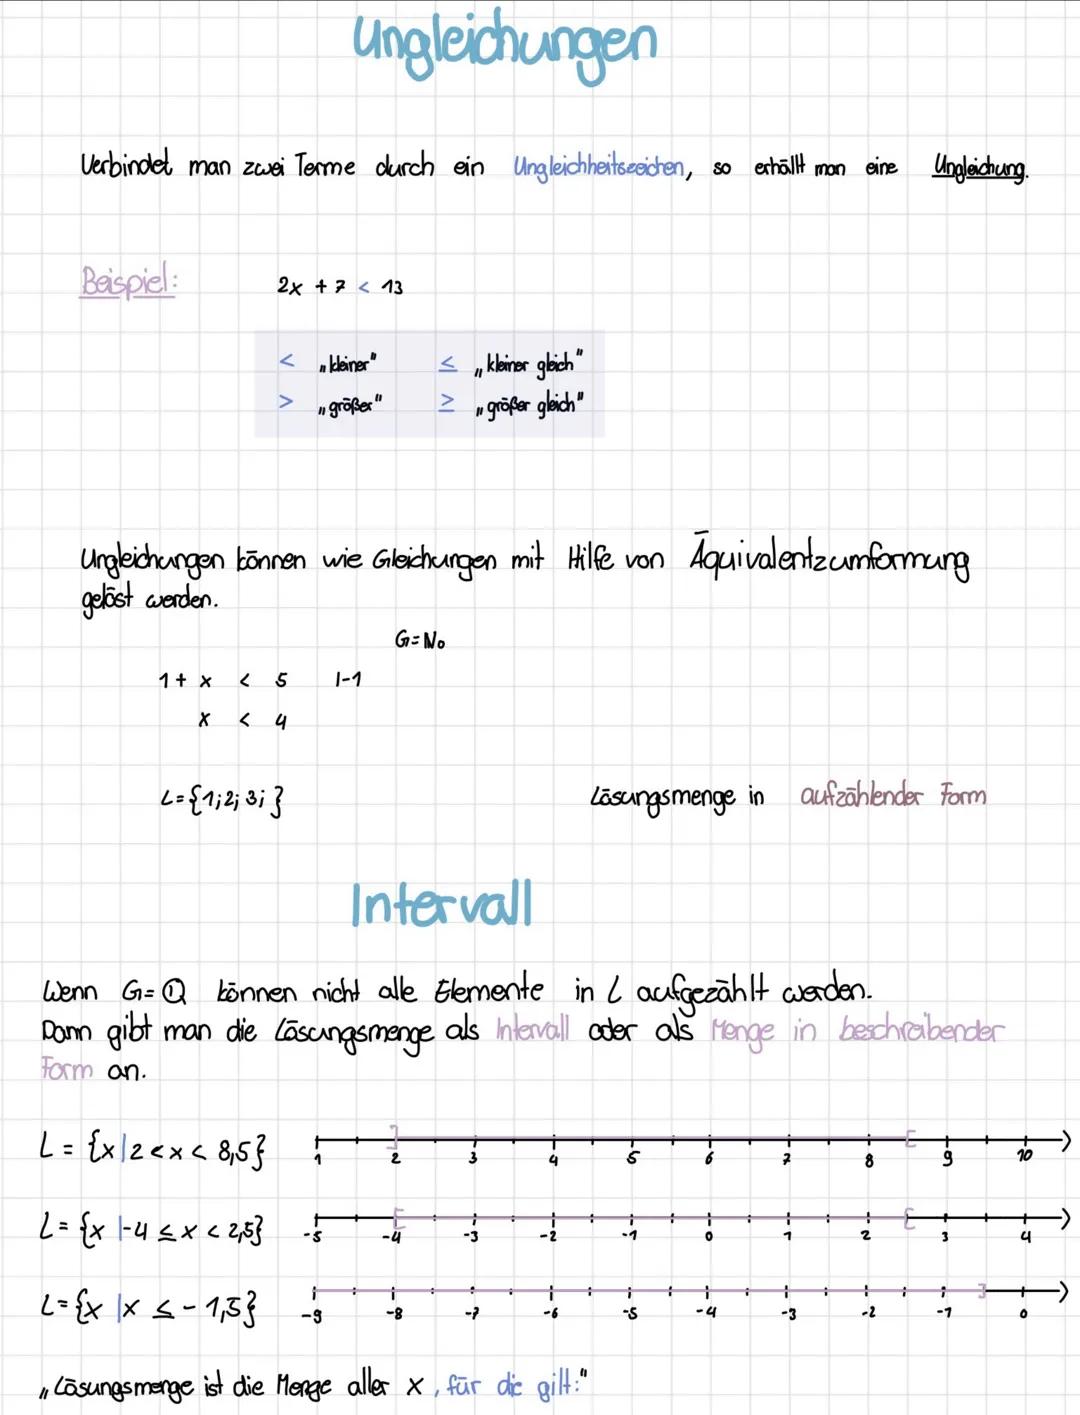 Ungleichungen
Verbindet man zwei Terme durch ein Ungleichheitszeichen, so erhällt man eine Ungleichung.
Beispiel: 2x + 7 < 13
< „kleiner" ≤ „kleiner gleich"
> „größer" ≥ „größer gleich"
Ungleichungen können wie Gleichungen mit Hilfe von Äquivalentzumformung
gelöst werden.
G = ℕ₀
1 + x < 5 |-1
x < 4
L = {1; 2; 3; } Lösungsmenge in aufzählender Form
Intervall
Wenn G = ℚ können nicht alle Elemente in L aufgezählt werden.
Dann gibt man die Lösungsmenge als Intervall oder als Menge in beschreibender
Form an.
L = {x | 2 < x < 8,5} ] [
1 2 3 4 5 6 7 8 9 10
L = {x | -4 ≤ x < 2,5} [ [
-5 -4 -3 -2 -1 0 1 2 3 4
L = {x | x ≤ - 1,5} ]
-9 -8 -7 -6 -5 -4 -3 -2 -1 0
„Lösungsmenge ist die Menge aller x, für die gilt:"